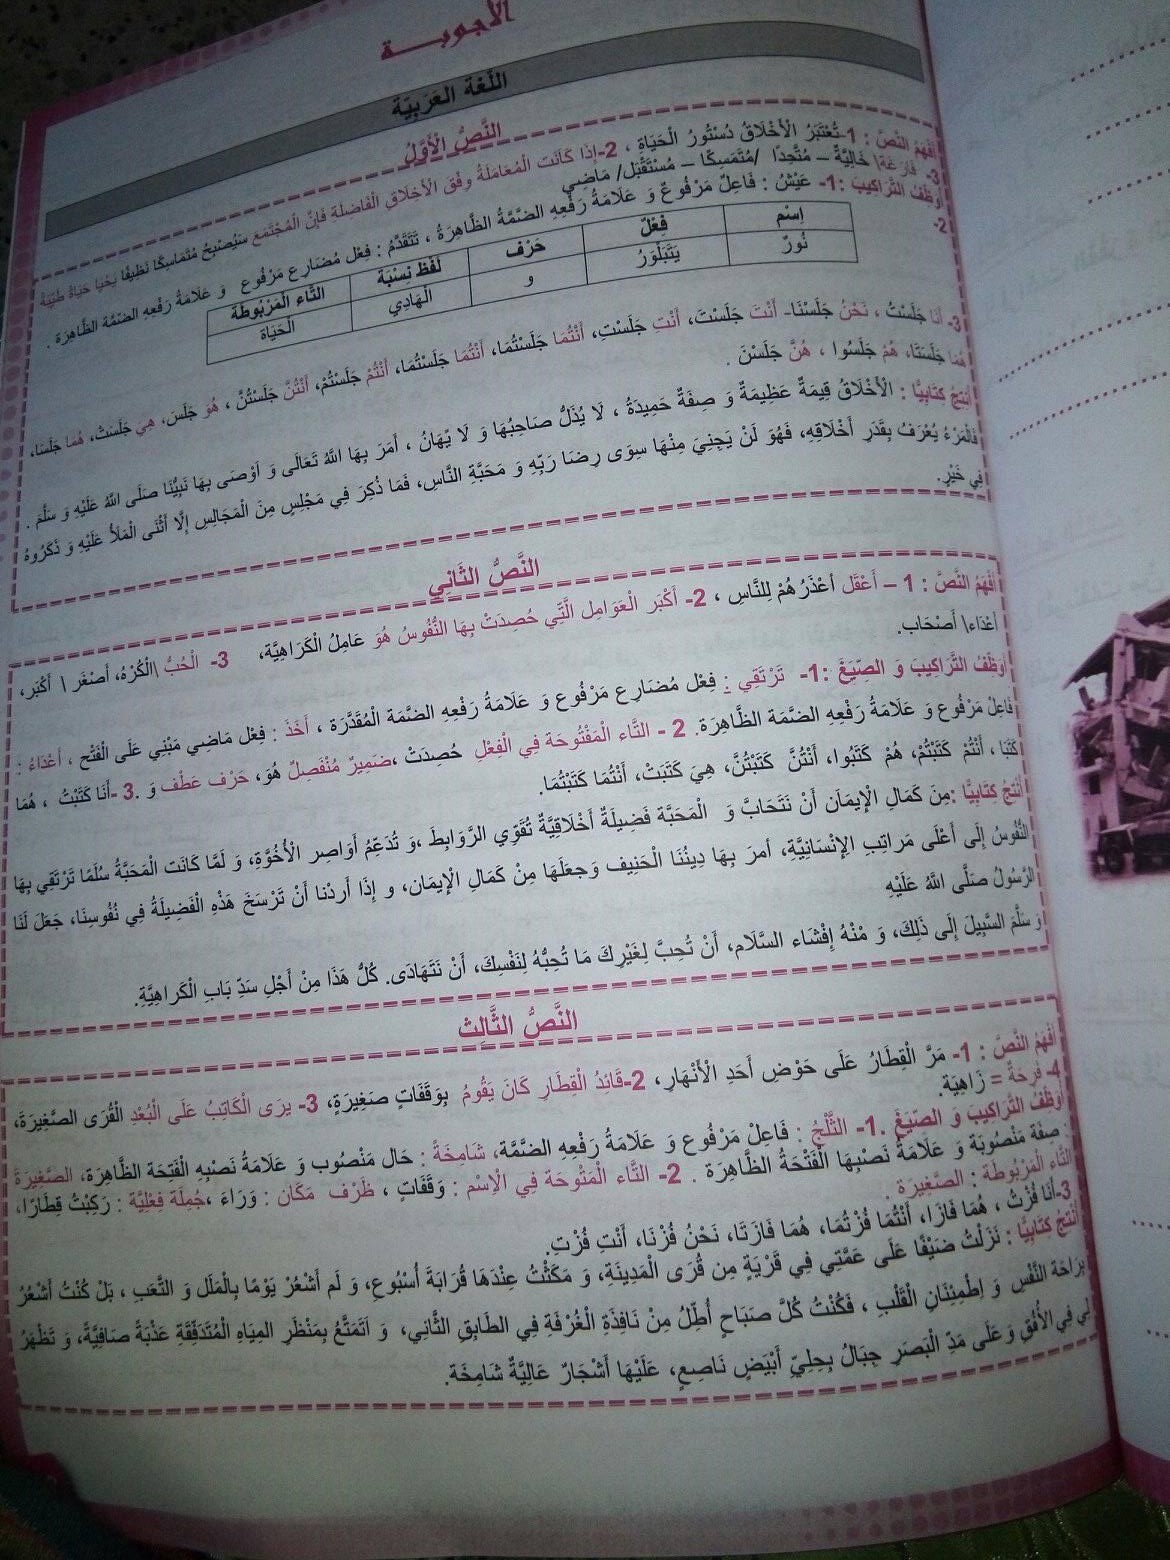 الأجوبـــة
اللُّغَة العَرَبِيَّة
النَّصُّ الْأَوَّلُ
أَفْهَمُ النَّصَّ : 1-تُعْتَبَرُ الْأَخْلَاقُ دُسْتُورُ الْحَيَاةِ ، 2-إِذَا كَانَت الْمُعَامَلَةُ وِفْقَ الْأَخْلَاقِ الْفَاضِلَةِ فَإِنَّ الْمُجْتَمَعَ سَيُصْبِحُ مُتَمَاسِكًا نَظِيفًا يَحْيَا حَيَاةً طَيِّبَةً
3- فَارِغَة\ خَالِيَّةٌ – مُتَّحِدًا /مُتَمَسِكًا – مُسْتَقْبَل/ مَاضِي
أُوَظِّفُ التَّرَاكِيبَ :1- عَيْشُ : فَاعِلٌ مَرْفُوعٌ وَ عَلَامَةُ رَفْعِهِ الضَّمَّةُ الظَّاهِرَةُ ، تَتَقَدَّمُ : فِعْل مُضَارِع مَرْفُوع وَ عَلَامَةُ رَفْعِهِ الضَّمَّة الظَّاهِرَة .
2-
إِسْم فِعْلٌ حَرْف لَفْظ نِسْبَة التَّاء الْمَرْبُوطَة
نُورٌ يَتَبَلْوَرُ و الْهَادِي الْحَيَاة
3- أَنَا جَلَسْتُ ، نَحْنُ جَلَسْنَا- أَنْتَ جَلَسْتَ، أَنْتِ جَلَسْتِ، أَنْتُمَا جَلَسْتُمَا، أَنْتُمَا جَلَسْتُمَا، أَنْتُمْ جَلَسْتُمْ، أَنْتُنَّ جَلَسْتُنَّ ، هُوَ جَلَسَ، هِي جَلَسَتْ، هُمَا جَلَسَا،
هُمَا جَلَسَتَا، هُمْ جَلَسُوا ، هُنَّ جَلَسْنَ .
أُنْتِجُ كِتَابِيًّا : الْأَخْلَاقُ قِيمَةٌ عَظِيمَةٌ وَ صِفَةٌ حَمِيدَةٌ ، لَا يُذَلُّ صَاحِبُهَا وَ لَا يُهَانُ ، أَمَرَ بِهَا اللهُ تَعَالَى وَ أَوْصَى بِهَا نَبِيُّنَا صَلَى اللهُ عَلَيْهِ وَ سَلَّمَ .
فَالْمَرْءُ يُعْرَفُ بِقَدَرِ أَخْلَاقِهِ، فَهُوَ لَنْ يَجْنِيَ مِنْهَا سِوَى رِضَا رَبِّهِ وَ مَحَبَّةِ النَّاسِ، فَمَا ذُكِرَ فِي مَجْلِسٍ مِنَ الْمَجَالِسِ إِلَّا أَثْنَى الْمَلَأُ عَلَيْهِ وَ ذَكَرُوهُ
فِي خَيْرٍ.
النَّصُّ الثَانِي
أَفْهَمُ النَّصَّ : 1 – أَعْقَل أَعْذَرُ هُمْ لِلنَّاسِ ، 2- أَكْبَر الْعَوَامِل الَّتِي حُصِدَتْ بِهَا النُّفُوسُ هُوَ عَامِلُ الْكَرَاهِيَّة، 3- الْحُبُّ \الْكُرْهُ، أَصْغَر \ أَكْبَر،
أَعْدَاء\ أَصْحَاب.
أُوَظِّفُ التَّرَاكِيبَ وَ الصِّيَغَ :1- تَرْتَقِي : فِعْل مُضَارِع مَرْفُوع وَ عَلَامَةُ رَفْعِهِ الضَّمَّة الْمُقَدَّرَة ، أَخَذَ : فِعْل مَاضِي مَبْنِي عَلَى الْفَتْح ، أَعْدَاءُ :
فَاعِلٌ مَرْفُوع وَ عَلَامَةُ رَفْعِهِ الضَّمَّة الظَّاهِرَة. 2 - التَّاء الْمَفْتُوحَة فِي الْفِعْلِ حُصِدَتْ ،ضَمِيرٌ مُنْفَصِلٌ هُوَ، حَرْف عَطْف وَ .3 -أَنَا كَتَبْتُ ، هُمَا
كَتَبَا ، أَنْتُمْ كَتَبْتُمْ، هُمْ كَتَبُوا، أَنْتُنَّ كَتَبْتُنَّ، هِيَ كَتَبَتْ، أَنْتُمَا كَتَبْتُمَا.
أُنْتِجُ كِتَابِيًّا :مِنَ كَمَالِ الْإِيمَانِ أَنْ نَتَحَابَّ وَ الْمَحَبَّة فَضِيلَةٌ أَخْلَاقِيَّةٌ تُقَوِّي الرَّوَابِطَ ،وَ تُدَعِّمُ أَوَاصِر الْأُخُوَّةِ، وَ لَمَّا كَانَت الْمَحَبَّةُ سُلَّمًا تَرْتَقِي بِهَا
النُّفُوسُ إِلَى أَعْلَى مَرَاتِبِ الإِنْسَانِيَّةِ، أَمرَ بِهَا دِينُنَا الْحَنِيف وَجَعَلَهَا مِنْ كَمَالِ الْإِيمَان، و إِذَا أَردْنا أَنْ تَرْسَخَ هَذِهِ الْفَضِيلَةُ فِي نُفُوسِنَا، جَعَلَ لَنَا
الرَّسُولُ صَلَّى اللهُ عَلَيْهِ
وَ سَلَّمَ السَّبِيلَ إِلَى ذَلِكَ، وَ مْنْهُ إِفْشَاء السَّلَام، أَنْ تُحِبَّ لِغَيْرِكَ مَا تُحِبُّهُ لِنَفْسِكَ، أَنْ نَتَهَادَى. كُلُّ هَذَا مِنْ أَجْلِ سَدِّ بَابِ الْكَراهِيَّةِ.
النَّصُّ الثَّالِث
أَفْهَمُ النَّصَّ : 1- مَرَّ الْقِطَارُ عَلَى حَوْض أَحَدِ الْأَنْهَارِ، 2-قَائِدُ الْقِطَارِ كَانَ يَقُومُ بِوَقَفَاتٍ صَغِيرَةٍ، 3- يرَى الْكَاتِبُ عَلَى الْبُعْدِ الْقُرَى الصَّغِيرَةَ،
4- فَرِحَةٌ = زَاهِيَة.
أُوَظِّفُ التَّرَاكِيبَ وَ الصِّيَغَ .1- الثَّلْجُ : فَاعِلٌ مَرْفُوع وَ عَلَامَةُ رَفْعِهِ الضَّمَّة، شَامِخَةً : حَال مَنْصُوب وَ عَلَامَةُ نَصْبِهِ الْفَتْحَة الظَّاهِرَة، الصَّغِيرَةَ
: صِفَة مَنْصُوبَة وَ عَلَامَةُ نَصْبِهَا الْفَتْحَةُ الظَّاهِرَة . 2- التَّاء الْمَتُوْحَة فِي الْإِسْم : وَقَفَاتٍ ، ظَرْف مَكَان : وَرَاءَ ،جُمْلَة فِعْلِيَّة : رَكِبْتُ قِطَارًا،
التَّاء الْمَرْبُوطَة : الصَّغِيرَة .
3-أَنَا فُزْتُ ، هُمَا فَازَا، أَنْتُمَا فُزْتُمَا، هُمَا فَازَتَا، نَحْنُ فُزْنَا، أَنْتِ فُزْتِ.
أُنْتِجُ كِتَابِيًّا : نَزَلْتُ ضَيْفًا عَلَى عَمَّتِي فِي قَرْيَةٍ مِن قُرَى الْمَدِينَةِ، وَ مَكَثْتُ عِنْدَهَا قُرَابَةَ أُسْبُوعٍ، وَ لَم أَشْعُرْ يَوْمًا بِالْمَلَل وَ التَّعَبِ ، بَلْ كُنْتُ أَشْعُرُ
بِرَاحَة النَّفْسِ وَ اِطْمِئِنَانِ الْقَلْبِ ، فَكُنْتُ كُلَّ صَبَاحٍ أُطِلُّ مِنْ نَافِذَةِ الْغُرْفَةِ فِي الطَابِقِ الثَّانِي، وَ اَتَمَتَّعُ بِمَنْظَرِ المِيَاهِ الْمُتَدَفِّقَةِ عَذْبَةً صَافِيَّةً، وَ تَظْهَرُ
لِي فِي الْأُفُقِ وَ عَلَى مَدِّ الْبَصَرِ جِبَالُ بِحِلِيٍّ أَبْيَضٍ نَاصِعٍ، عَلَيْهَا أَشْجَارٌ عَالِيَّةٌ شَامِخَة.